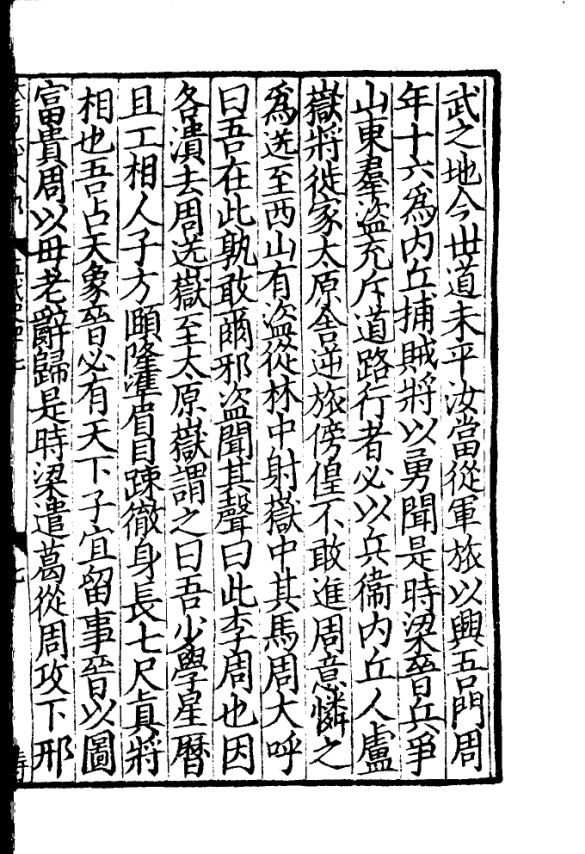 武之地今世道未平汝當從軍旅以興吾門周
年十六爲内丘捕賊將以勇聞是時梁晉兵爭
山東羣盜充斥道路行者必以兵衞内丘人盧
嶽將徙家太原舍逆旅傍偟不敢進周意憐之
爲送至西山有盜從林中射嶽中其馬周大呼
曰吾在此孰敢爾邪盜聞其聲曰此李周也因
各潰去周送嶽至太原嶽謂之曰吾少學星曆
且工相人子方頤隆準眉目疎徹身長七尺眞將
相也吾占天象晉必有天下子宜留事晉以圖
富貴周以毋老辭歸是時梁遣葛從周攻下邢